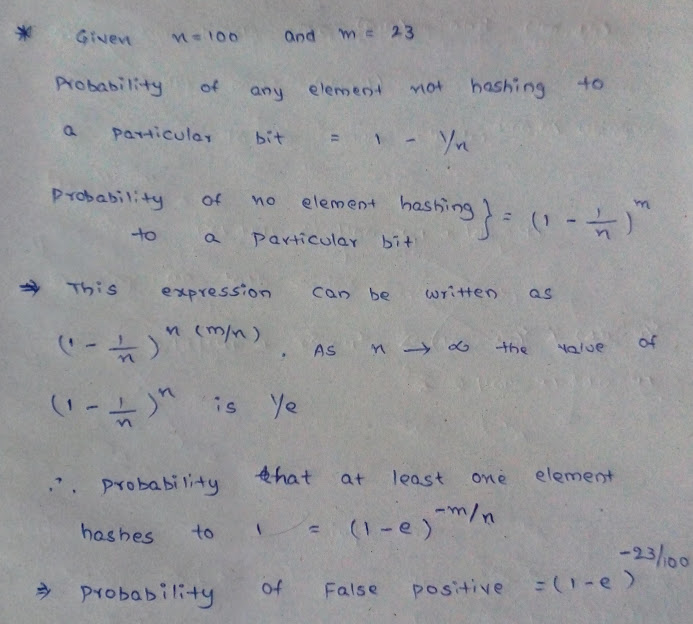 * Given n=100 and m = 23
Probability of any element not hashing to
a particular bit = 1 - 1/n
Probability of no element hashing } = (1 - 1/n)^m
to a particular bit
⇒ This expression can be written as
(1 - 1/n)^n (m/n). As n → ∞ the value of
(1 - 1/n)^n is 1/e
∴ probability that at least one element
hashes to 1 = (1-e)^-m/n
⇒ probability of False positive = (1-e)^-23/100